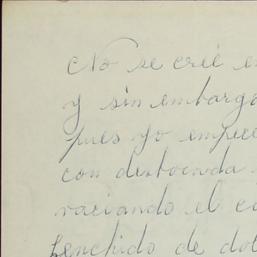 No se creé e
y sin embargo
pues yo empecé
con desbocada
vaciando el c
henchido de dol